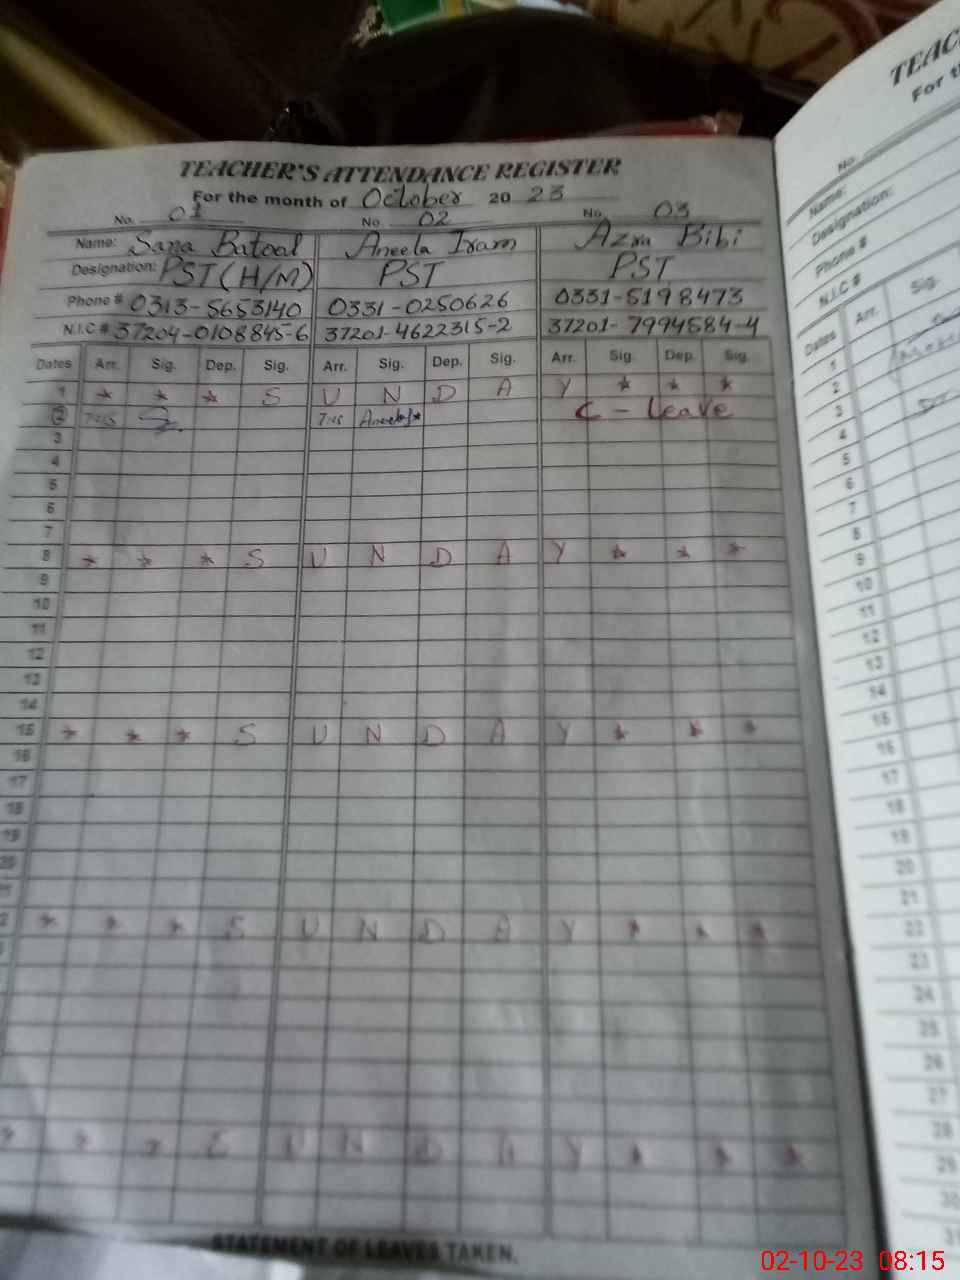 TEACHER'S ATTENDANCE REGISTER
For the month of October 20 23
No. 01 No 02 No. 03
Name: Sana Batool Aneela Iram Azra Bibi
Designation: PST(H/M) PST PST
Phone # 0313-5653140 0331-0250626 0331-5198473
N.I.C # 37204-0108845-6 37201-4622315-2 37201-7994584-4
Dates Arr. Sig. Dep. Sig. Arr. Sig. Dep. Sig. Arr. Sig. Dep. Sig.
1 * * * S U N D A Y * * *
2 7:45 7:45 C - Leave
3
4
5
6
7
8 * * * S U N D A Y * * *
9
10
11
12
13
14
15 * * * S U N D A Y * * *
16
17
18
19
20
* * * S U N D A Y * * *
* * * S U N D A Y * * *
STATEMENT OF LEAVES TAKEN.
TEAC
For th
No.
Name:
Designation:
Phone #
N.I.C #
Dates Arr. Sig.
1
2
3
4
5
6
7
8
9
10
11
12
13
14
15
16
17
18
19
20
21
22
23
24
25
26
27
28
29
30
31
02-10-23 08:15